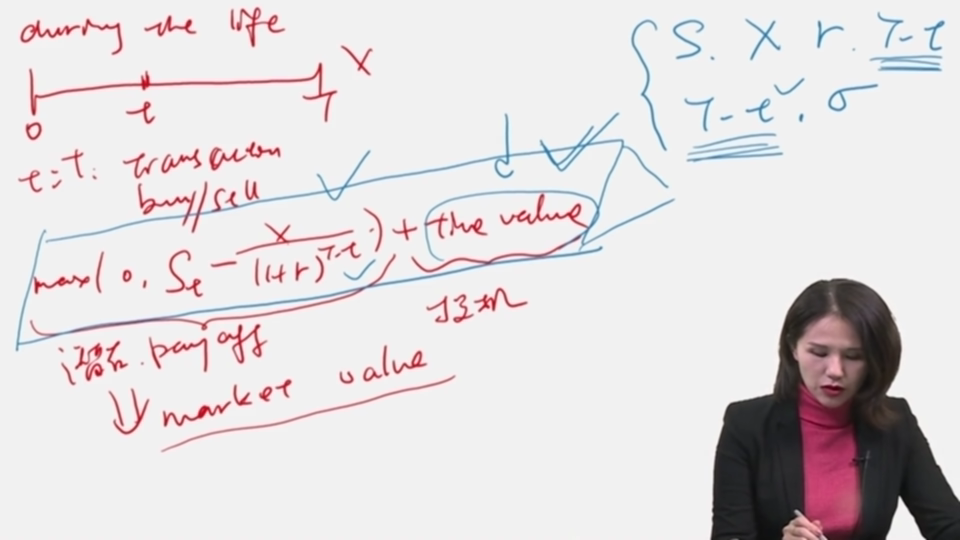 during the life
X
0 t T
t=T: transaction
buy/sell
max(0, St - X/(1+r)^T-t) + the value
潜在 payoff
投机
market value
S. X r. T-t
T-t. σ